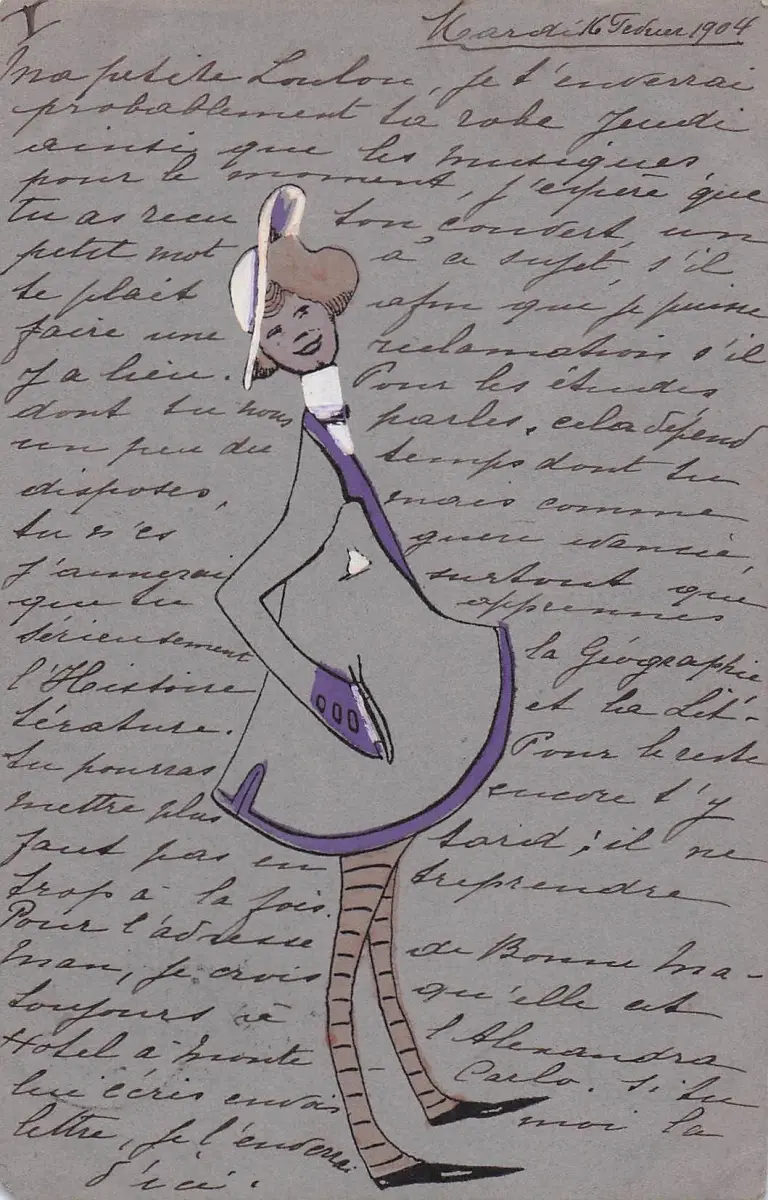 I
Mardi 16 Fevrier 1904
Ma petite Loulou, je t'enverrai
probablement ta robe Jeudi
ainsi que les musiques
pour le moment, j'espère que
tu as recu ton couvert, un
petit mot à ce sujet, s'il
te plait afin que je puisse
faire une réclamation s'il
y a lieu. Pour les études
dont tu nous parles, cela dépend
un peu du temps dont tu
disposes, mais comme
tu n'es guère avancée,
j'aimerai surtout que
que tu apprennes
sérieusement la Géographie
l'Histoire et la Lit-
térature. Pour le reste
tu pourras encore t'y
mettre plus tard ; il ne
faut pas en treprendre
trop à la fois.
Pour l'adresse de Bonne Ma-
man, je crois qu'elle est
toujours à l'Alexandra
Hotel à Monte - Carlo. Si tu
lui écris envois moi la
lettre, je l'enverrai
d'ici.